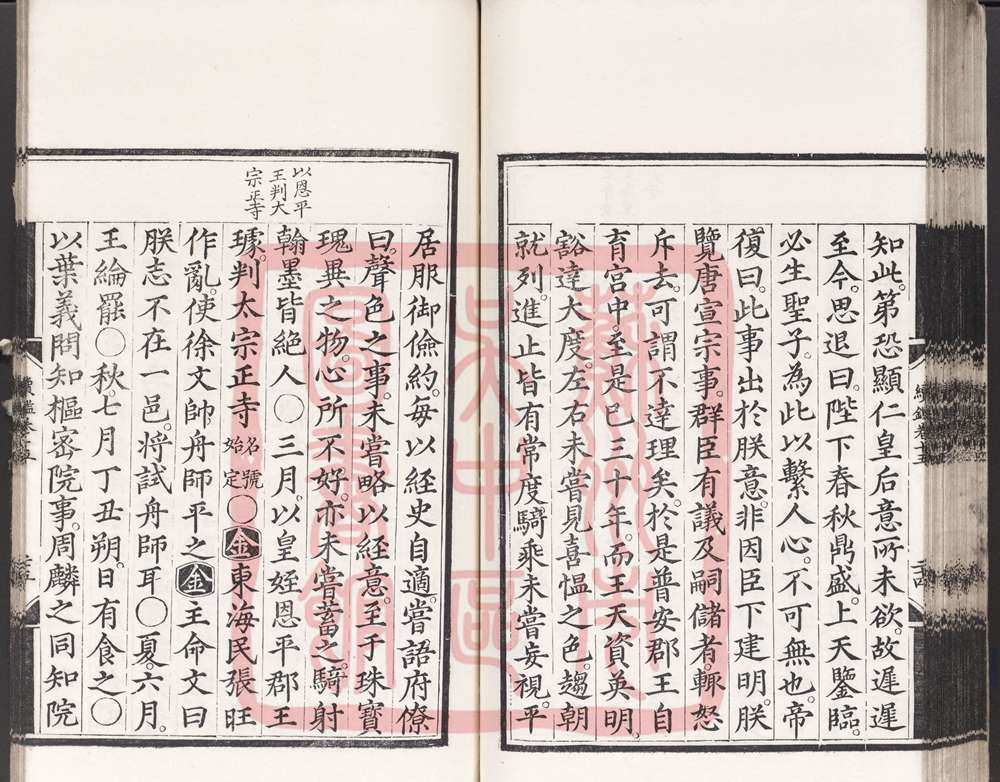 知此。第恐顯仁皇后意所未欲。故遲遲
至今。思退曰。陛下春秋鼎盛。上天鑒臨。
必生聖子。為此以繫人心。不可無也。帝
復曰。此事出於朕意。非因臣下建明。朕
覽唐宣宗事。群臣有議及嗣儲者。輒怒
斥去。可謂不達理矣。於是普安郡王自
育宮中。至是已三十年。而王天資英明。
豁達大度。左右未嘗見喜慍之色。趨朝
就列。進止皆有常度。騎乘未嘗妄視。平
以恩平
王判大
宗正寺
居服御儉約。每以經史自適。嘗語府僚
曰。聲色之事。未嘗略以經意。至于珠寶
瑰異之物。心所不好。亦未嘗蓄之。騎射
翰墨皆絕人○三月。以皇姪恩平郡王
璩。判太宗正寺名號始定○金東海民張旺
作亂。使徐文帥舟師平之金主命文曰
朕志不在一邑。將試舟師耳○夏。六月。
王綸罷○秋。七月丁丑朔。日有食之○
以葉義問知樞密院事。周麟之同知院